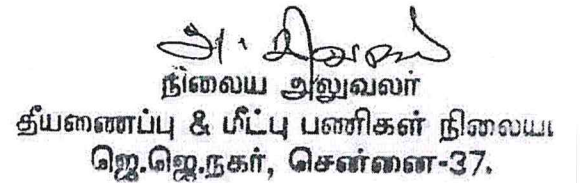 நிலைய அலுவலர்
தீயணைப்பு & மீட்பு பணிகள் நிலைய
ஜெ.ஜெ.நகர், சென்னை-37.